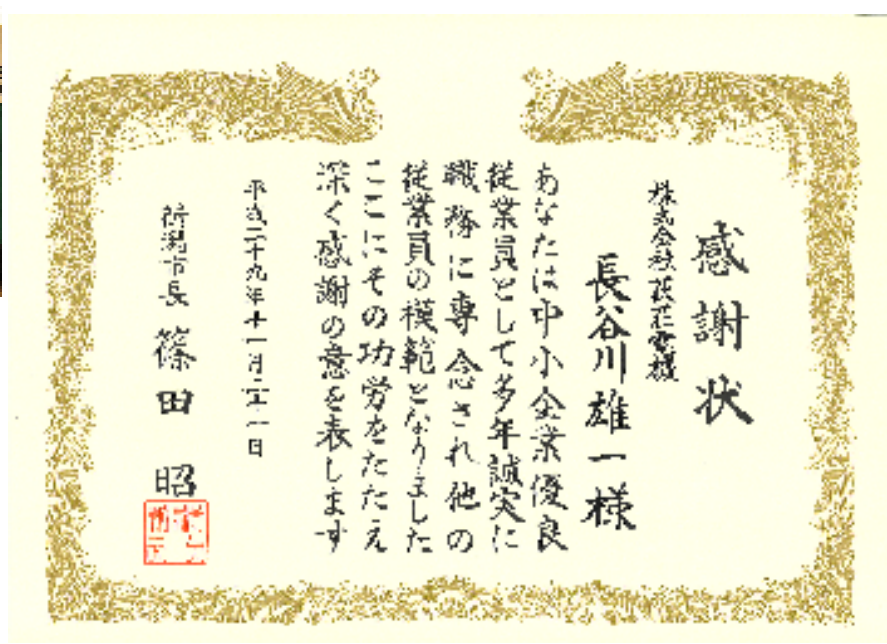 感謝状
株式会社
長谷川雄一様
あなたは中小企業優良
従業員として多年誠実に
職務に専念され他の
従業員の模範となりました
ここにその功労をたたえ
深く感謝の意を表します
平成二十九年十一月二十一日
新潟市長 篠田 昭